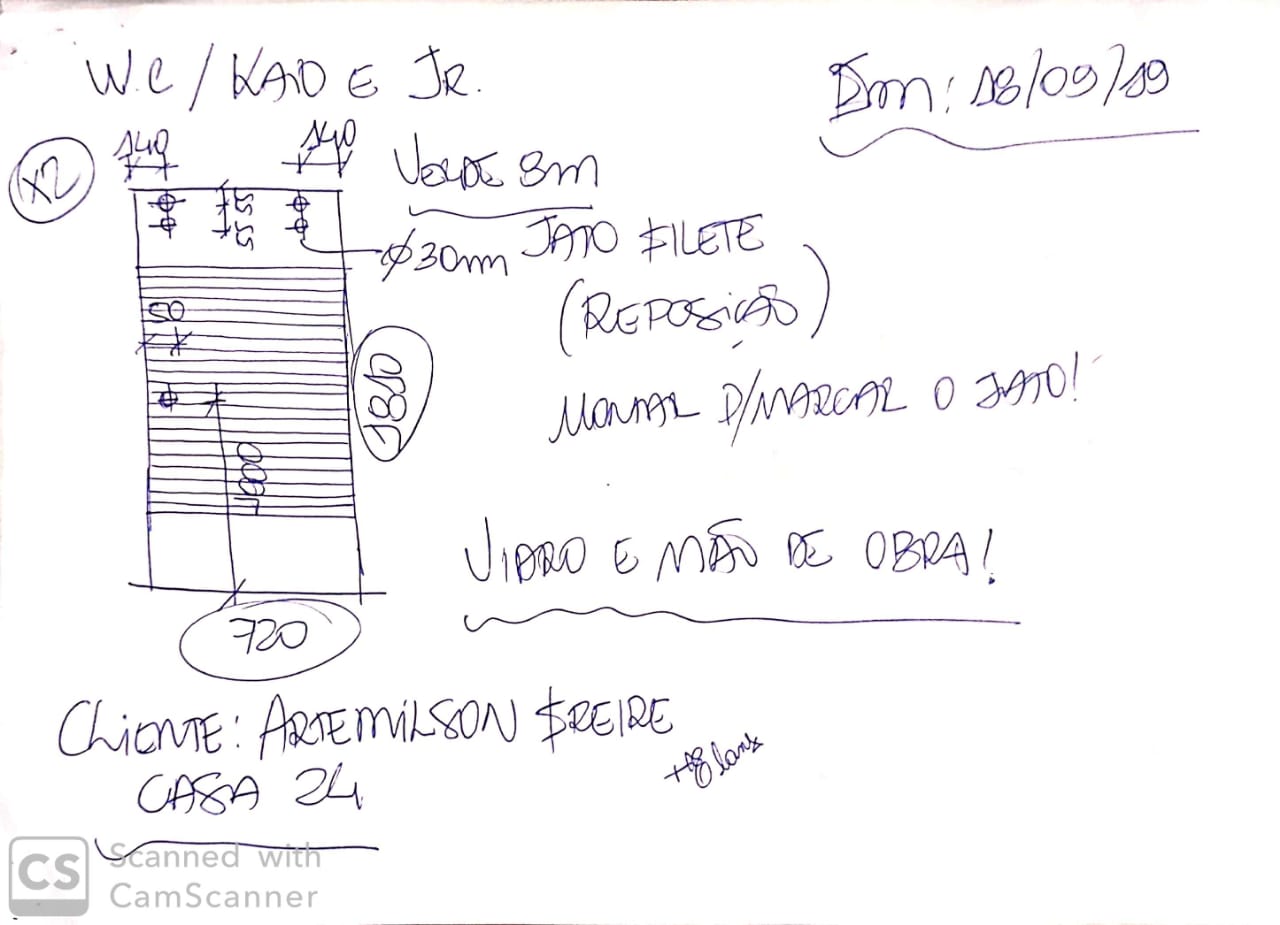 W.C / KAIO E JR.
Em: 18/09/19
X2
140
140
VERDE 8m
55
55
Ø30mm
JATO FILETE
(REPOSIÇÃO)
50
1810
MONTAR P/MARCAR O JATO!
1000
VIDRO E MÃO DE OBRA!
720
CLIENTE: ARTEMILSON FREIRE
CASA 24
CS Scanned with
CamScanner